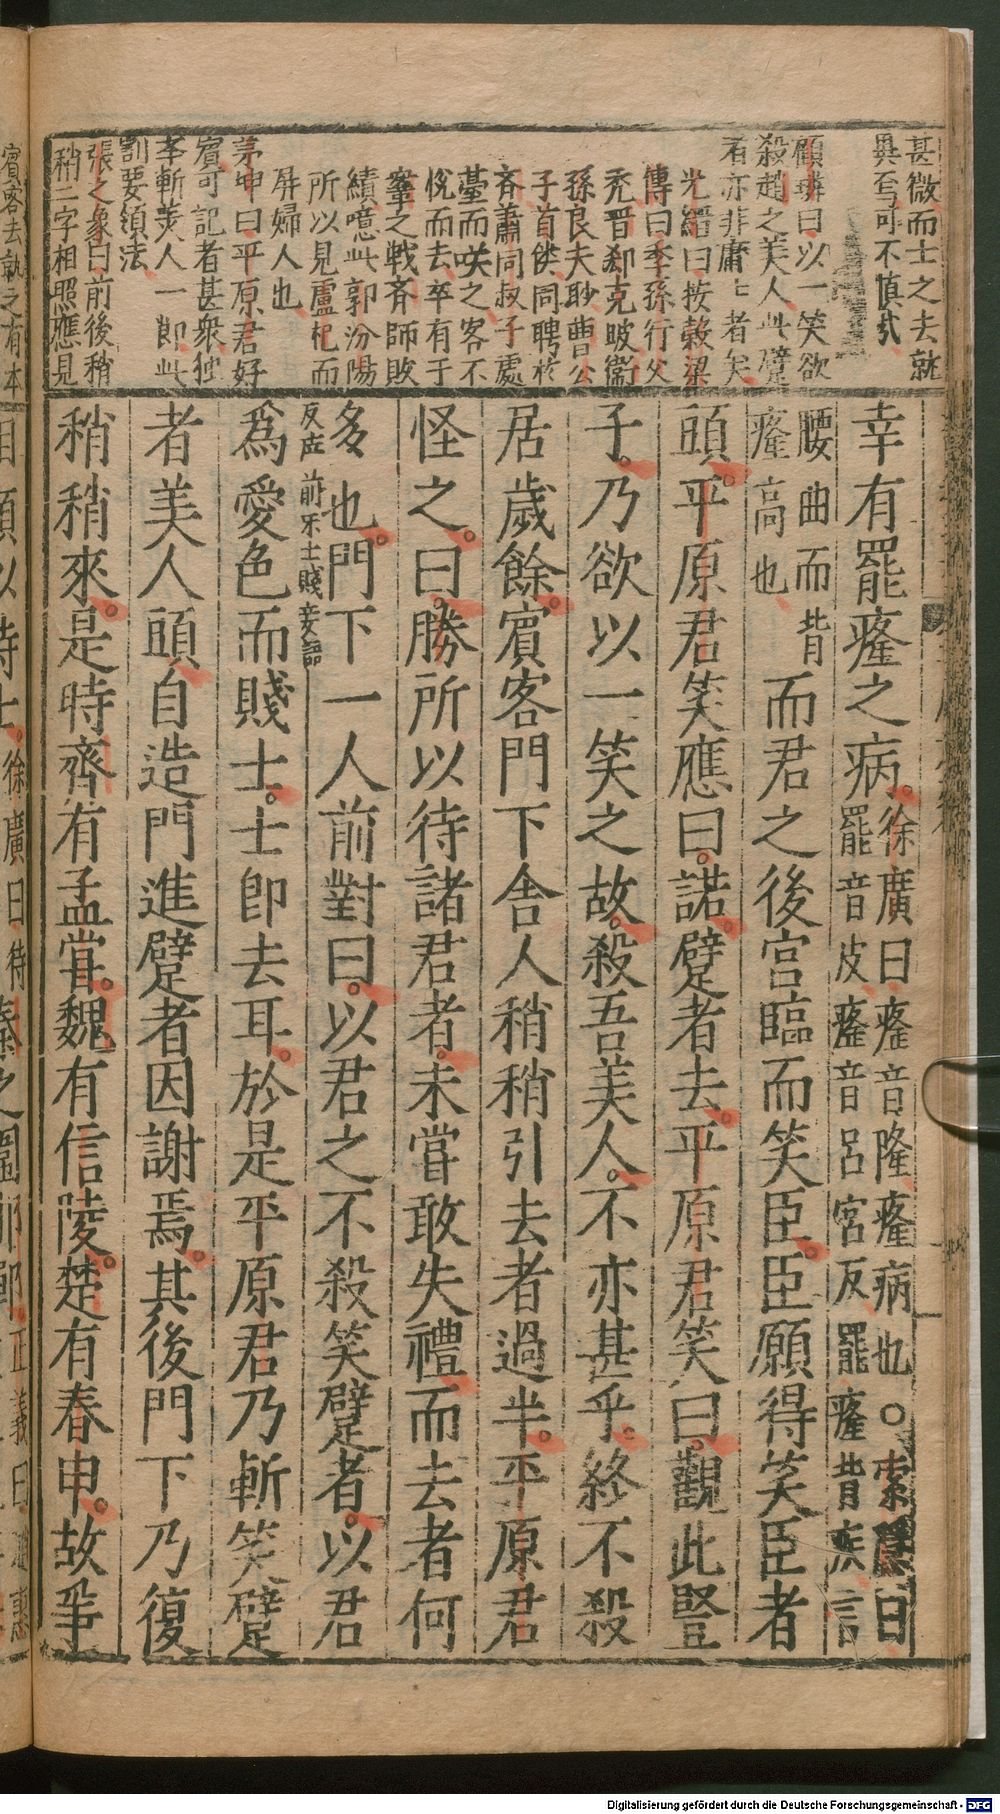 甚微而士之去就
異至可不慎哉
顧璘曰以一笑欲
殺趙之美人此躄
者亦非庸士者矣
光縉曰按穀梁
傳曰季孫行父
禿晉郤克眇衞
孫良夫跛曹公
子首僂同聘於
齊蕭同叔子處
臺而咲之客不
悅而去卒有于
鞌之戰齊師敗
績噫此郭汾陽
所以見盧杞而
屏婦人也
茅坤曰平原君好
賓可記者甚衆独
李斬美人一節此
割要領法
張之象曰前後稍
稍二字相照應見
幸有罷癃之病徐廣曰癃音隆癃病也○索隱曰
罷音皮癃音呂宮反罷癃背疾言
腰曲而背
癃高也而君之後宮臨而笑臣臣願得笑臣者
頭平原君笑應曰諾躄者去平原君笑曰觀此豎
子乃欲以一笑之故殺吾美人不亦甚乎終不殺
居歲餘賓客門下舍人稍稍引去者過半平原君
怪之曰勝所以待諸君者未嘗敢失禮而去者何
多也門下一人前對曰以君之不殺笑躄者以君
反应前不士賤妾語
爲愛色而賤士士即去耳於是平原君乃斬笑躄
者美人頭自造門進躄者因謝焉其後門下乃復
稍稍來是時齊有孟嘗魏有信陵楚有春申故爭
賓客去就之有本
相傾以待士徐廣曰待
秦之圍邯鄲
正義曰趙惠
Digitalisierung gefördert durch die Deutsche Forschungsgemeinschaft - DFG